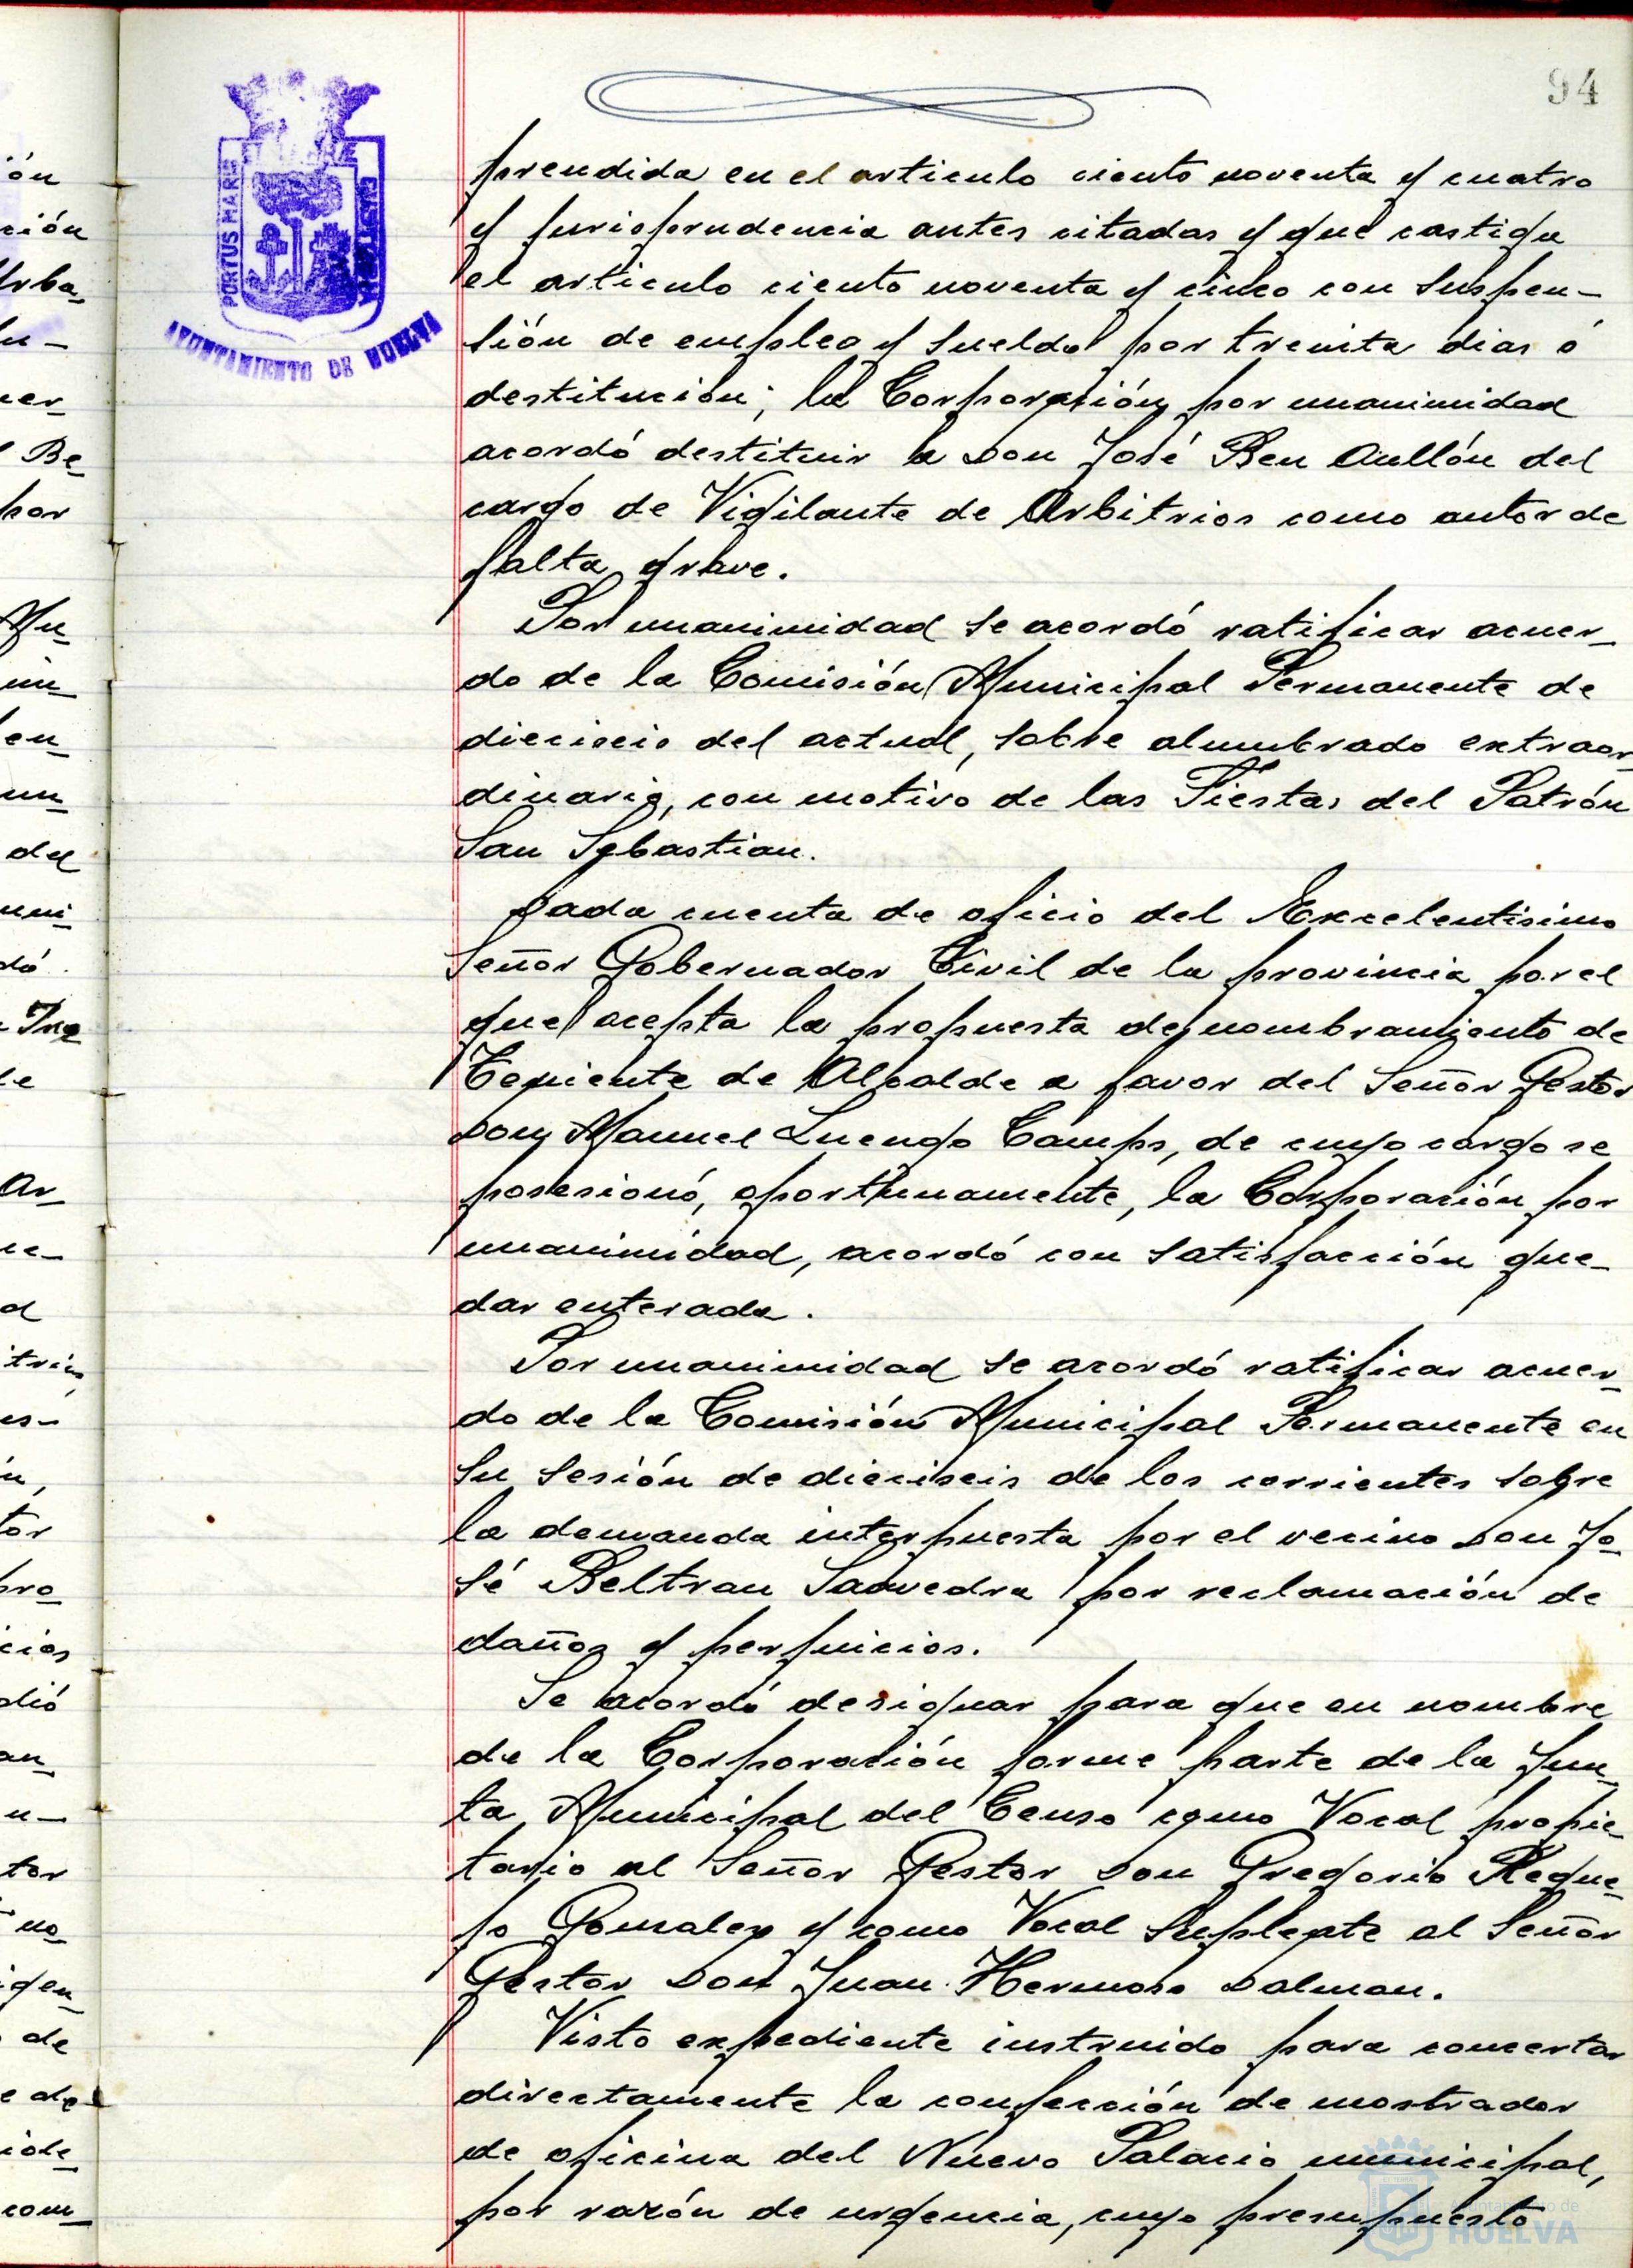 94
PORTUS MARIS
AYUNTAMIENTO DE HUELVA
prendida en el articulo ciento noventa y cuatro
y jurisprudencia antes citadas y que castiga
el articulo ciento noventa y cinco con suspen-
sión de empleo y sueldo por treinta dias ó
destitución; la Corporación, por unanimidad
acordó destituir a Don José Ben Aullón del
cargo de Vigilante de Arbitrios como autor de
falta grave.
Por unanimidad se acordó ratificar acuer-
do de la Comisión Municipal Permanente de
del actual, sobre alumbrado extraor-
dinario, con motivo de las Fiestas del Patrón
San Sebastian.
Dada cuenta de oficio del Excelentisimo
Señor Gobernador Civil de la provincia por el
que acepta la propuesta de nombramiento de
Teniente de Alcalde a favor del Señor Gestor
Don Manuel Luengo Camps, de cuyo cargo se
posesionó, oportunamente, la Corporación por
unanimidad, acordó con satisfacción que-
dar enterada.
Por unanimidad se acordó ratificar acuer-
do de la Comisión Municipal Permanente en
su sesión de dieciseis de los corrientes sobre
la demanda interpuesta por el vecino Don Jo-
sé Beltran Saavedra por reclamación de
daños y perjuicios.
Se acordó designar para que en nombre
de la Corporación forme parte de la Jun-
ta Municipal del Censo como Vocal propie-
tario al Señor Gestor Don Gregorio Reque-
jo Gonzalez y como Vocal Suplente al Señor
Gestor Don Juan Hermoso Dalman.
Visto expediente instruido para concertar
directamente la confección de mostrador
de oficina del Nuevo Palacio municipal,
por razón de urgencia, cuyo presupuesto
Ayuntamiento de
HUELVA